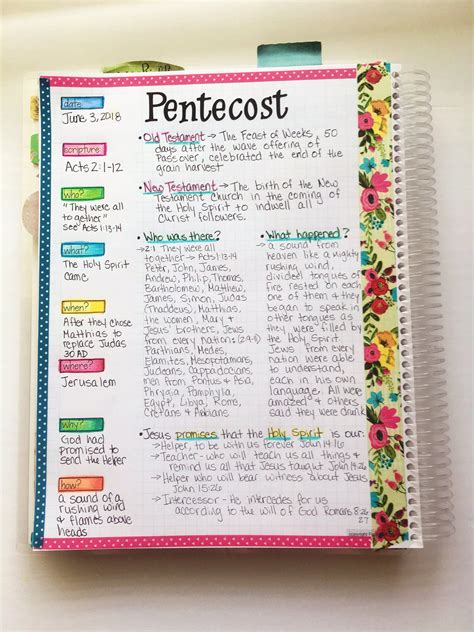 Pentecost
date:
June 3, 2018
scripture:
Acts 2:1-12
who?
"They were all
together"
see Acts 1:13-14
what?
The Holy Spirit
came
when?
After they chose
Matthias to
replace Judas
30 AD
where?
Jerusalem
why?
God had
promised to
send the Helper
how?
a sound of a
rushing wind
& flames above
heads
• Old Testament → The Feast of Weeks, 50
days after the wave offering of
Passover, celebrated the end of the
grain harvest
• New Testament → The birth of the New
Testament Church in the coming of
the Holy Spirit to indwell all of
Christ followers.
• Who was there?
→ 2:1 They were all
together → Acts 1:13-14
Peter, John, James,
Andrew, Philip, Thomas,
Bartholomew, Matthew,
James, Simon, Judas
(Thaddeus), Matthias,
the women, Mary &
Jesus' brothers, Jews
from every nation: (2:9-11)
Parthians, Medes,
Elamites, Mesopotamians,
Judeans, Cappadocians,
men from Pontus & Asia,
Phrygia, Pamphylia,
Egypt, Libya, Rome,
Cretans & Arabians
• What happened?
a sound from
heaven like a mighty
rushing wind,
divided tongues of
fire rested on each
one of them & they
began to speak in
other tongues as
they were filled by
the Holy Spirit
Jews from every
nation were able
to understand,
each in his own
language. All were
amazed & others
said they were drunk
• Jesus promises that the Holy Spirit is our:
→ Helper, to be with us forever John 14:16
→ Teacher - who will teach us all things &
remind us all that Jesus taught John 14:26
→ Helper who will bear witness about Jesus
John 15:26
→ Intercessor - He intercedes for us
according to the will of God Romans 8:26
27